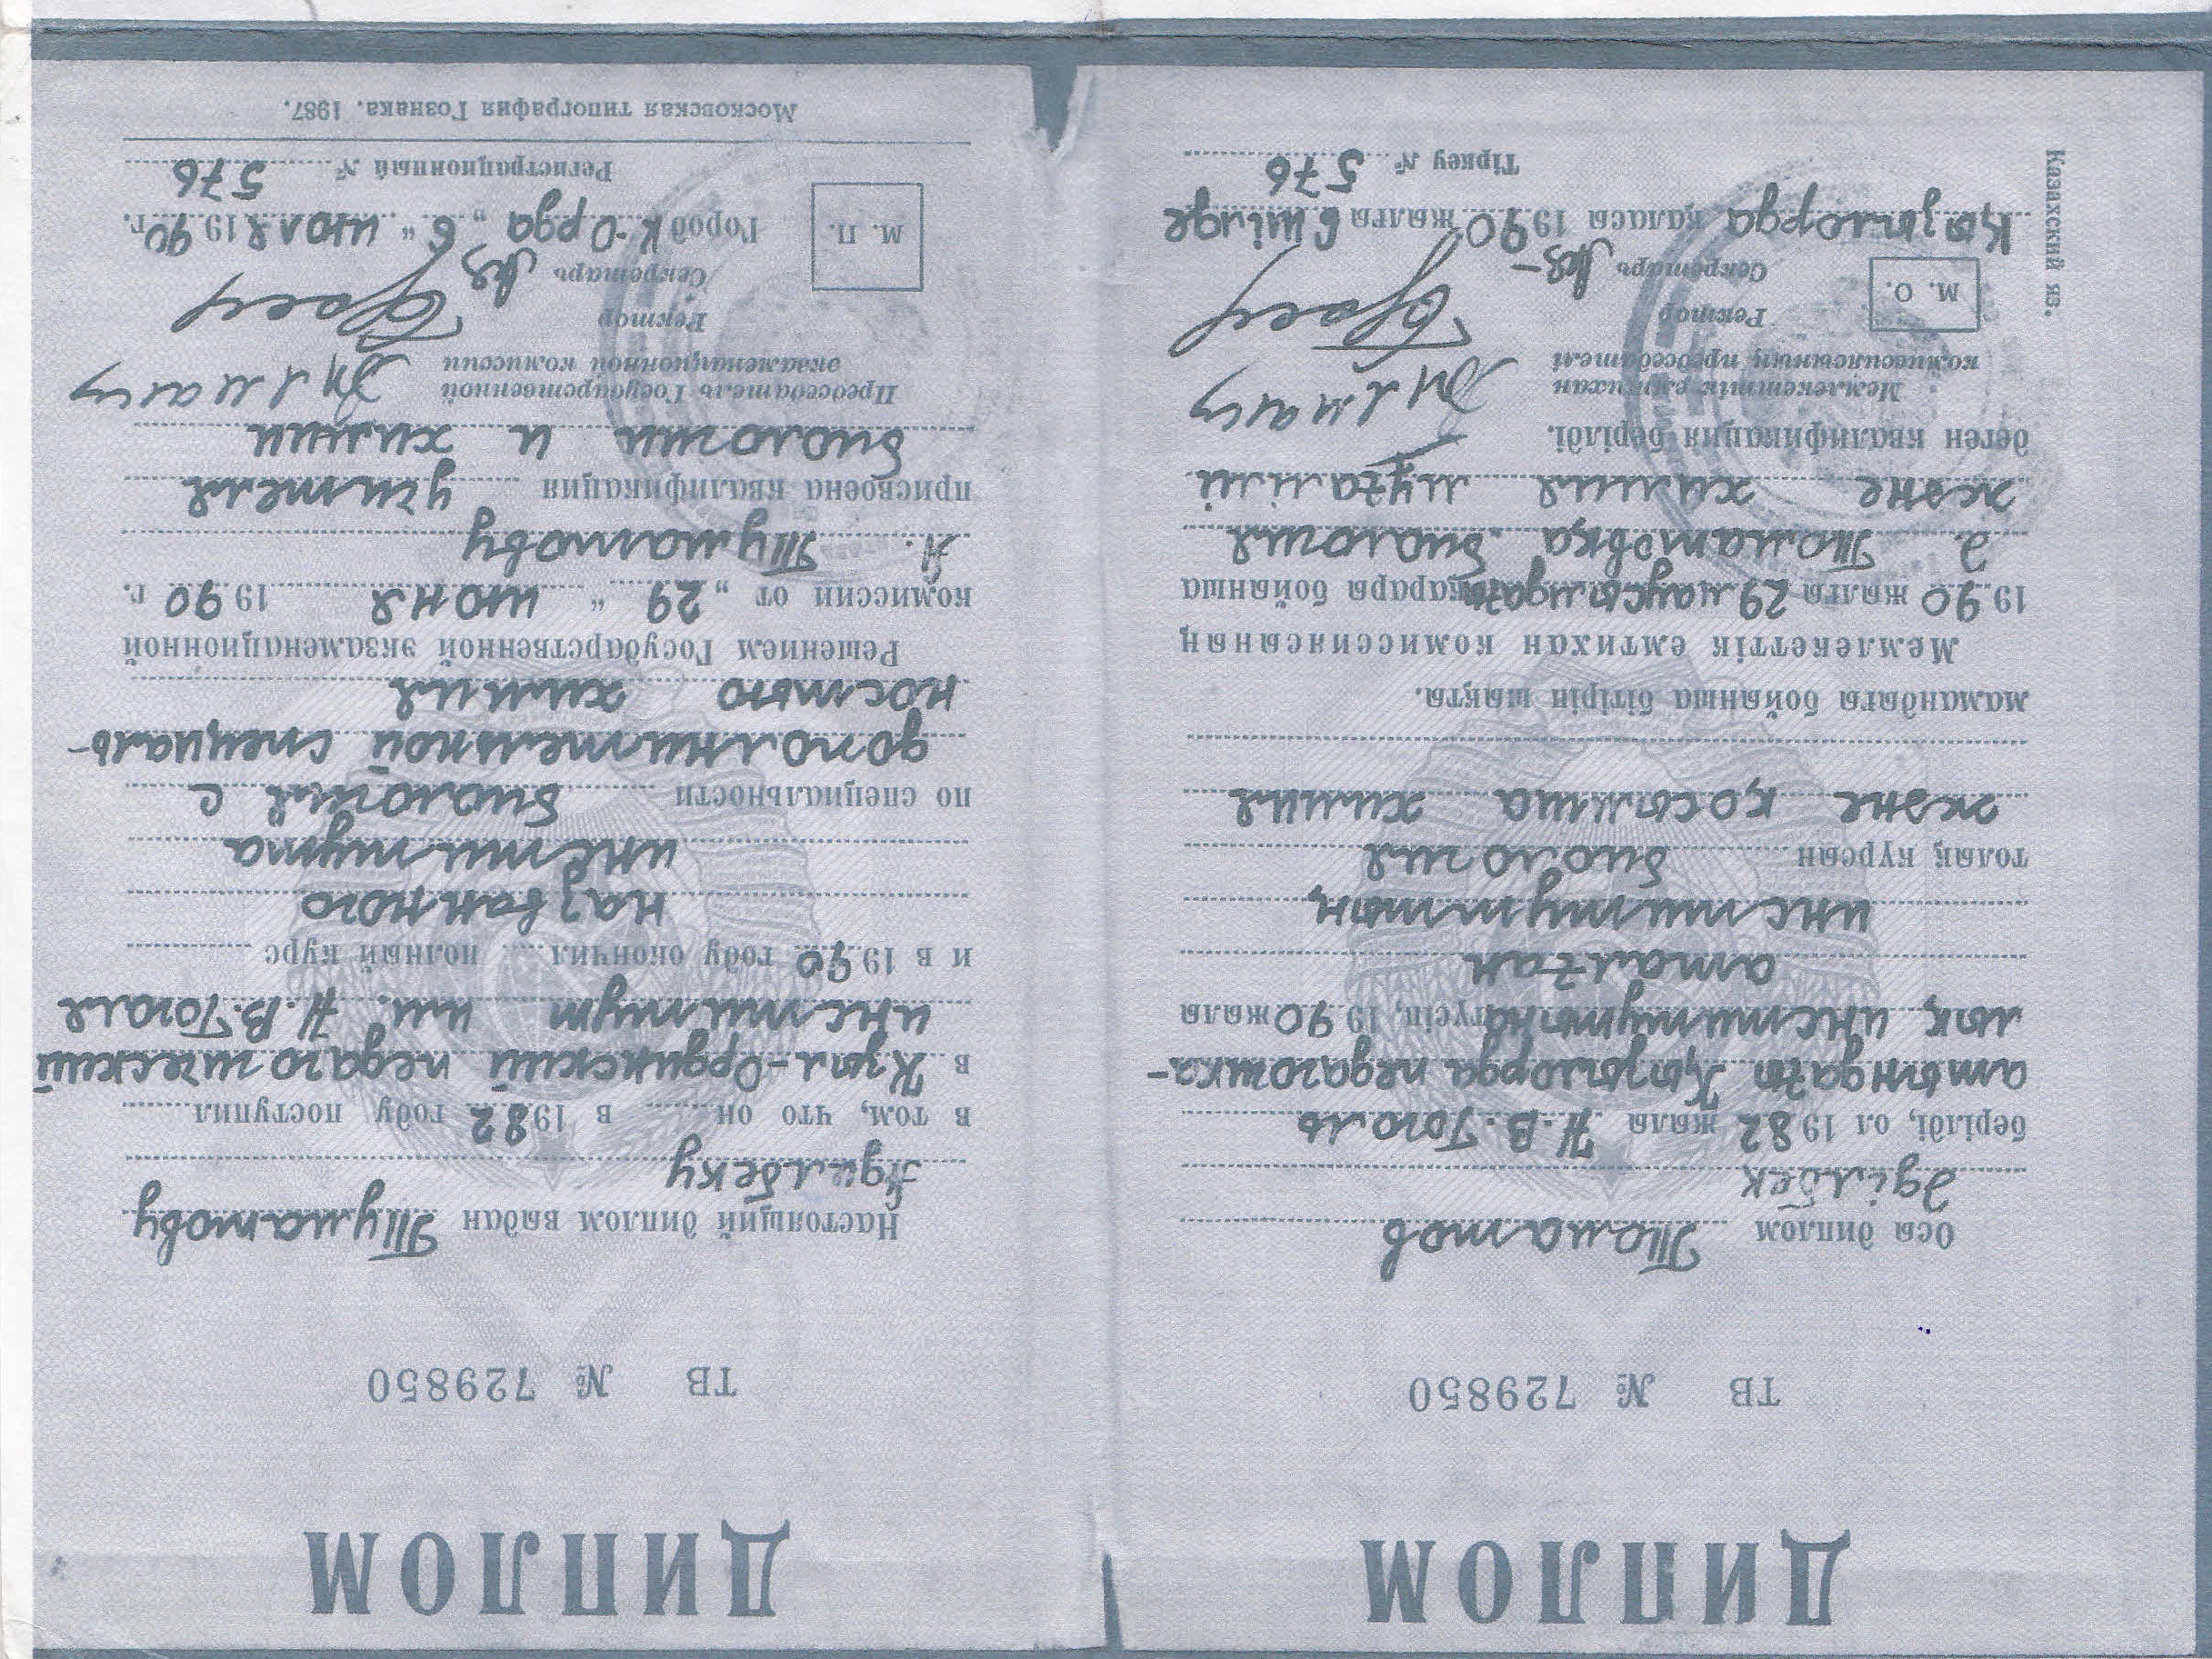 ДИПЛОМ
ТВ № 729850
Осы диплом Томатов
Әділбек
берілді, ол 1982 жылы Н.В. Гоголь
атындағы Қызылорда педагогика-
лық институтына түсіп, 1990 жылы
аталған
институттың
толық курсын биология
және қосымша химия
мамандығы бойынша бітіріп шықты.
Мемлекеттік емтихан комиссиясының
1990 жылғы 29 маусымдағы қарары бойынша
Ә Томатовқа биология
және химия мұғалімі
деген квалификация берілді.
Мемлекеттік емтихан
комиссиясының председателі
Ректор
М. О.
Секретарь
Қызылорда қаласы 1990 жылғы 6 шілде
Тіркеу № 576
Казахский яз.
ДИПЛОМ
ТВ № 729850
Настоящий диплом выдан Туматову
Адильбеку
в том, что он в 1982 году поступил
в Кзыл-Ординский педагогический
институт им. Н.В. Гоголя
и в 1990 году окончил полный курс
названного
института
по специальности биология с
дополнительной специаль-
ностью химия
Решением Государственной экзаменационной
комиссии от „29" июня 1990 г.
А. Туматову
присвоена квалификация учителя
биологии и химии
Председатель Государственной
экзаменационной комиссии
Ректор
Секретарь
М. П.
Город К-Орда „6" июля 1990 г.
Регистрационный № 576
Московская типография Гознака. 1987.